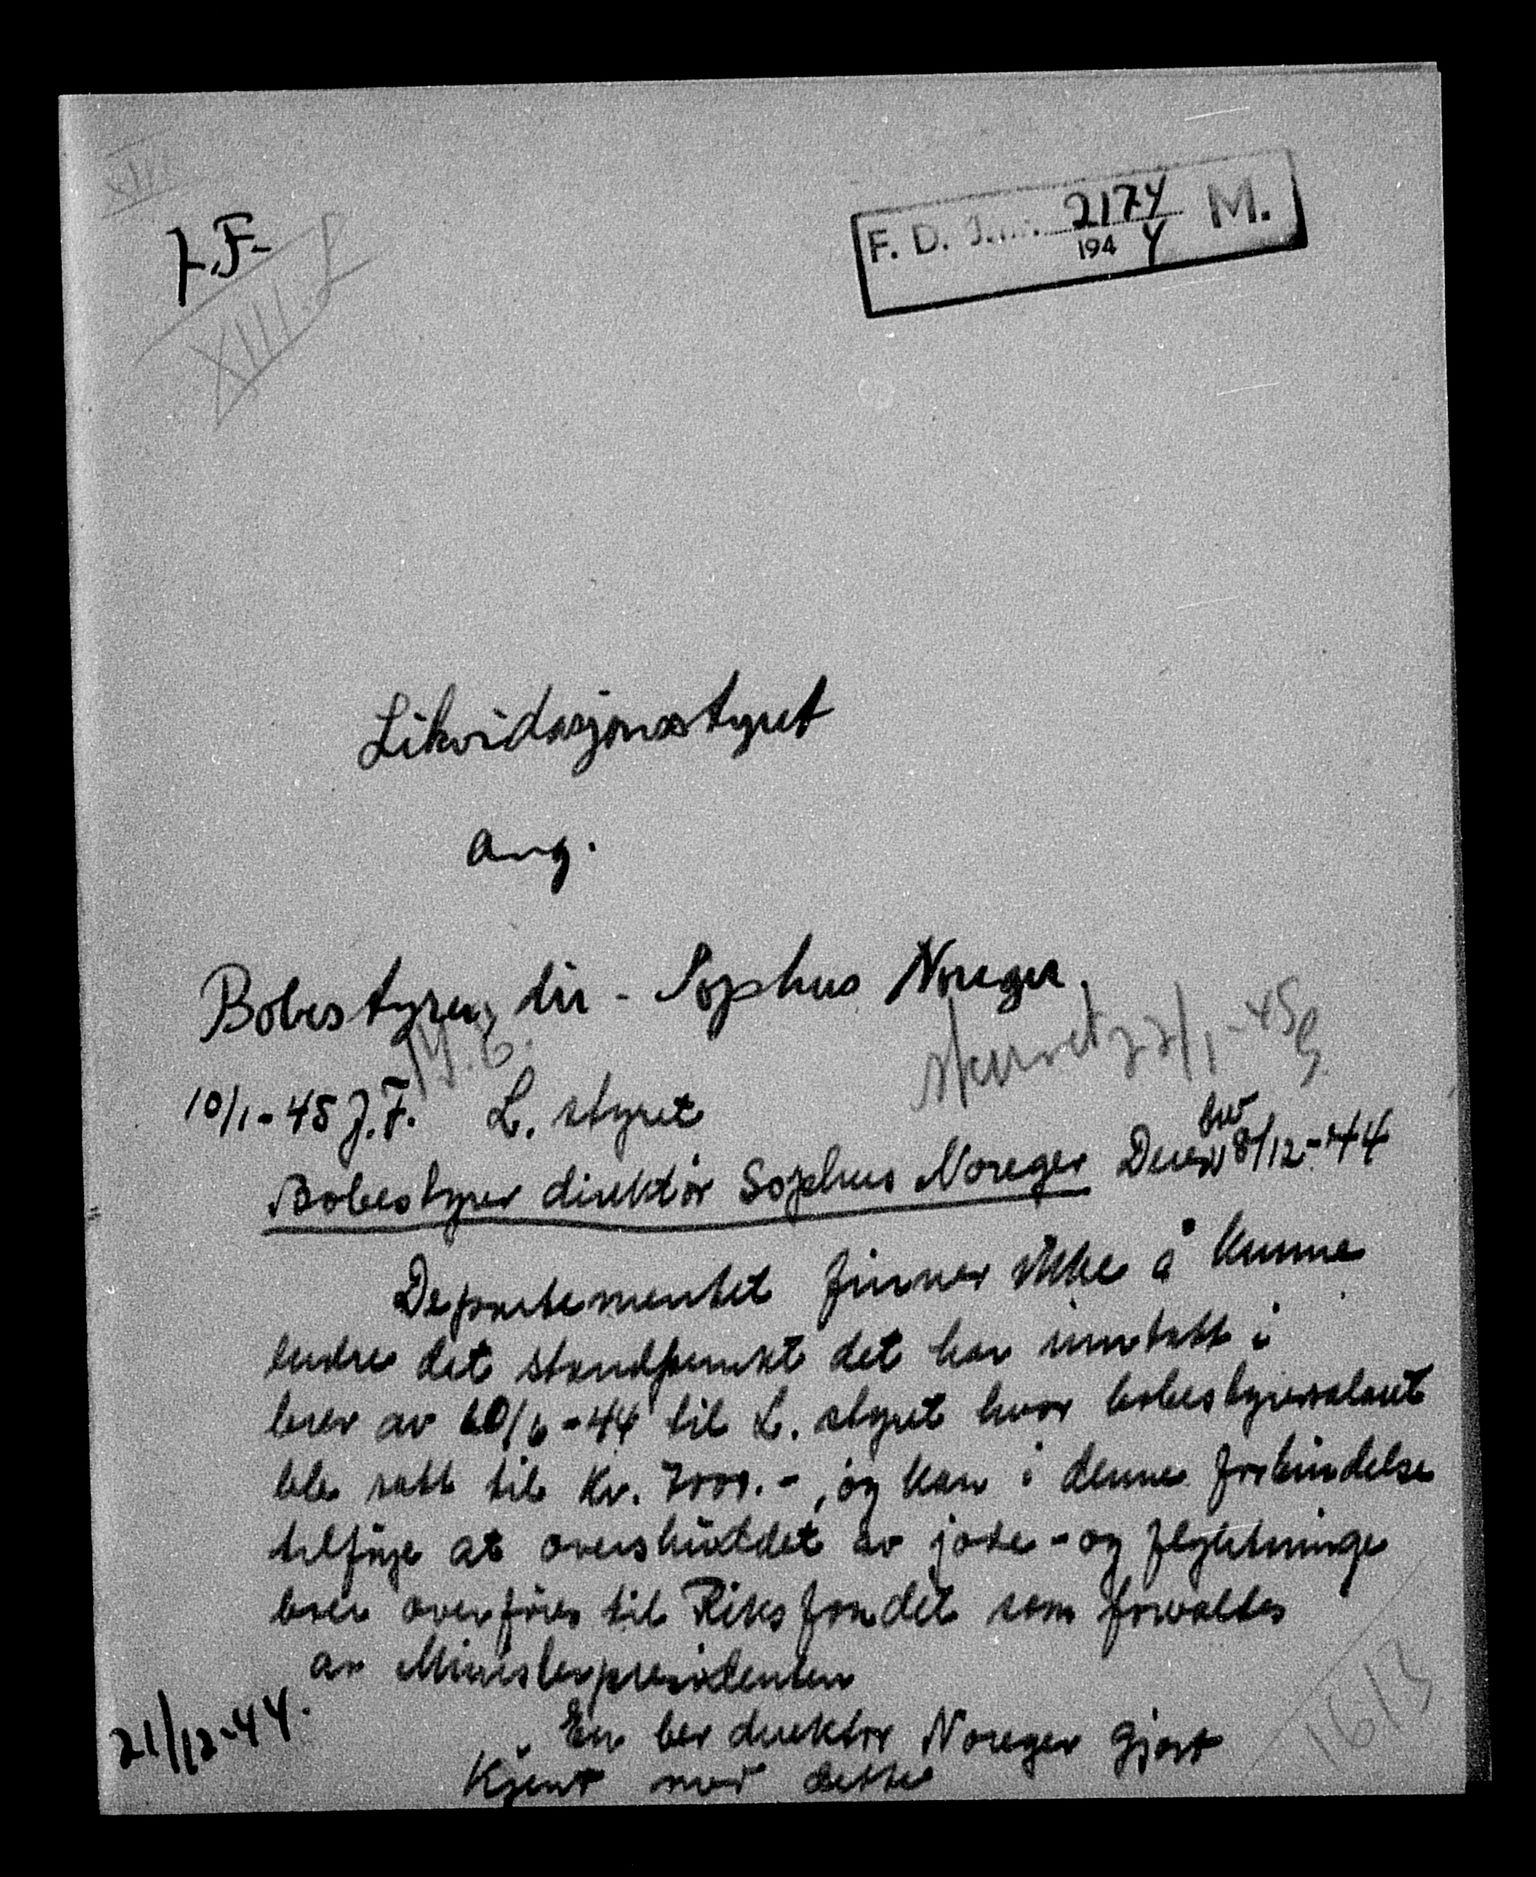 XIII
J.F.
XIII. 8
F. D. J.nr. 2174 M.
1944
Likvidasjonsstyret
ang.
Bobestyrer, dir. Sophus Noreger.
J.6.
skrevet 22/1-45
10/1-45 J.F. L. styret
brev
Bobestyrer direktör Sophus Noreger Deres 8/12-44
Departementet finner ikke å kunne
endre det standpunkt det har inntatt i
brev av 20/6-44 til L. styret hvor bobestyrersalæret
ble satt til Kr. 7000.-, og kan i denne forbindelse
tilföye at overskuddet av jöde- og flyktninge
boer overföres til Riksfondet som forvaltes
av Ministerpresidenten
21/12-44.
En ber direktör Noreger gjort
Kjent med dette
1613